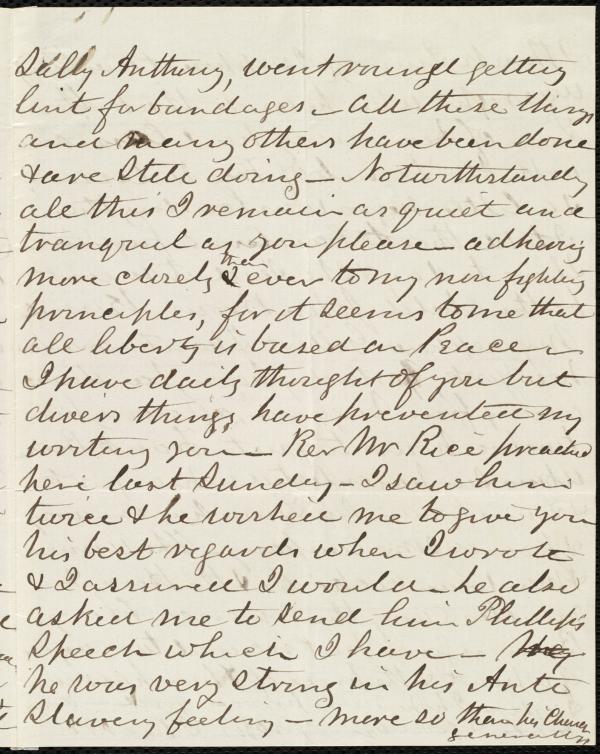 Sally Anthony, went round getting
lint for bandages - All these things
and many others have been done
& are still doing - Notwithstanding
all this I remain as quiet and
tranquil as you please - adhering
more closely than ever to my non fighting
principles, for it seems to me that
all liberty is based on Peace -
I have daily thought of you but
divers things have prevented my
writing you - Rev Mr Rice preached
here last Sunday - I saw him
twice & he wished me to give you
his best regards when I wrote
& I assured I would - he also
asked me to send him Phillips
speech which I have -
he was very strong in his Anti
Slavery feeling - more so than his Church
generally